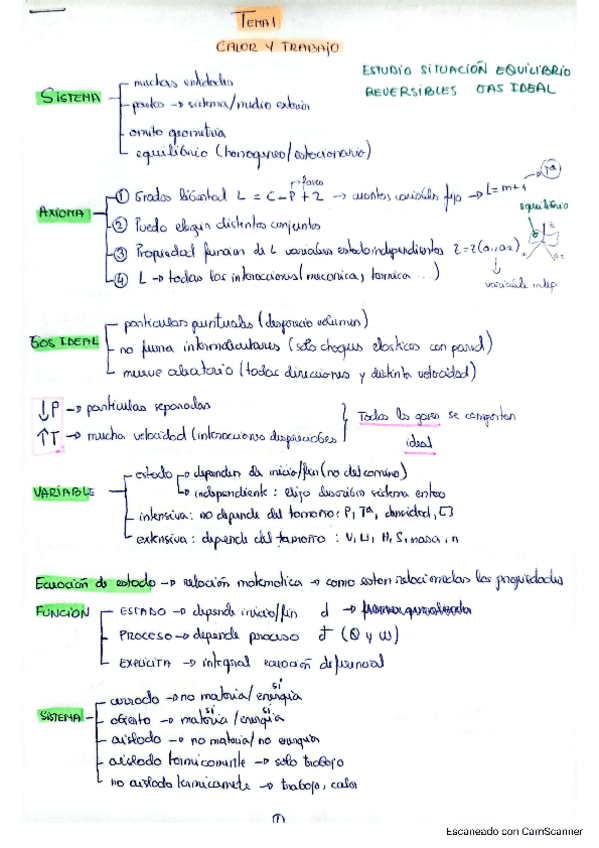 TEMA 1
CALOR Y TRABAJO
ESTUDIO SITUACIÓN EQUILIBRIO
REVERSIBLES GAS IDEAL
SISTEMA
muchas entidades
pared → sistema/medio exterior
omito geometria
equilibrio (homogeneo/estacionario)
AXIOMA
① Grados libertad L = C - P + 2 → cuantas variables fijo → L = m + 1
fases
Tª
equilibrio
② Puedo elegir distintos conjuntos
③ Propiedad funcion de L variables estado independientes z = z(a₁, a₂)
variable indep
④ L → todas las interacciones (mecanica, termica ...)
GAS IDEAL
particulas puntuales (desprecio volumen)
no fuerza intermoleculares (solo choques elasticos con pared)
mueve aleatorio (todas direcciones y distinta velocidad)
↓P → particulas separadas
↑T → mucha velocidad (interacciones despreciables
Todos los gases se comportan
ideal
VARIABLE
estado → dependen de inicio/fin (no del camino)
→ independiente: elijo describir sistema entero
intensiva: no depende del tamaño: P, Tª, densidad, []
extensiva: depende del tamaño: V, U, H, S, masa, n
Ecuación de estado → relación matematica → como estan relacionadas las propiedades
FUNCIÓN
ESTADO → depende inicio/fin d →
PROCESO → depende proceso đ (Q y W)
EXPLÍCITA → integral ecuación diferencial
SISTEMA
cerrado → no materia/ si energía
abierto → si materia/ si energía
aislado → no materia/no energia
aislado termicamente → solo trabajo
no aislado termicamente → trabajo, calor
①
Escaneado con CamScanner